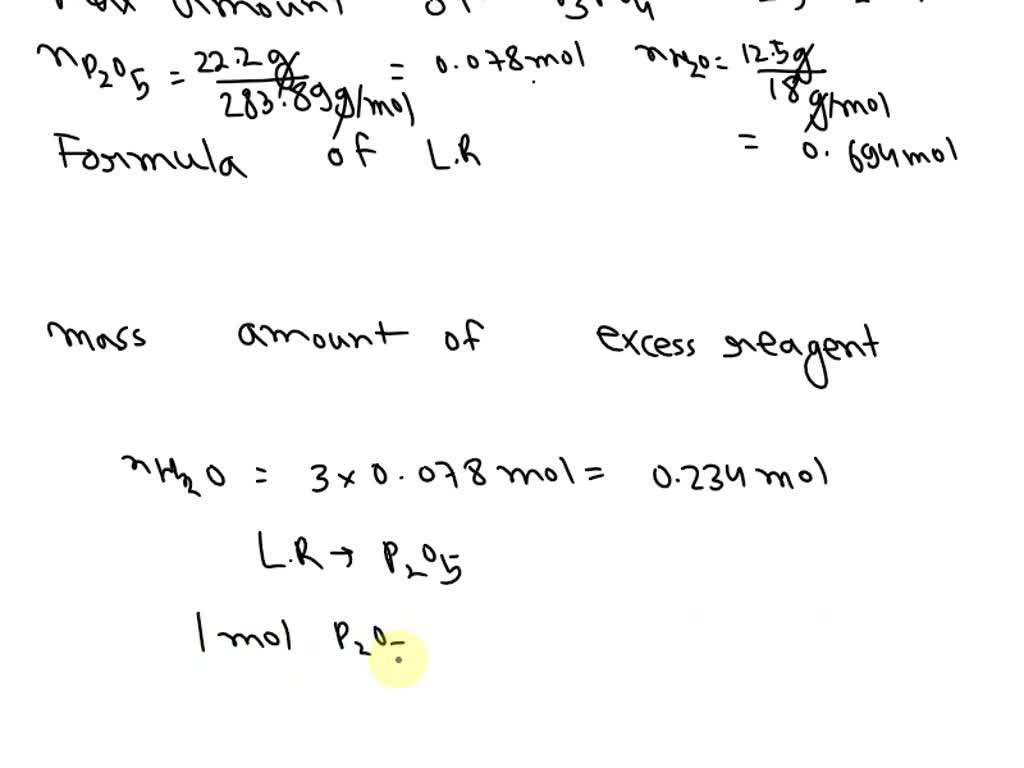 amount of
nP₂O₅ = 22.2g / 283.89 g/mol = 0.078 mol nH₂O = 12.5g / 18 g/mol
Formula of L.R = 0.694 mol
mass amount of excess reagent
nH₂O = 3 × 0.078 mol = 0.234 mol
L.R → P₂O₅
1 mol P₂O